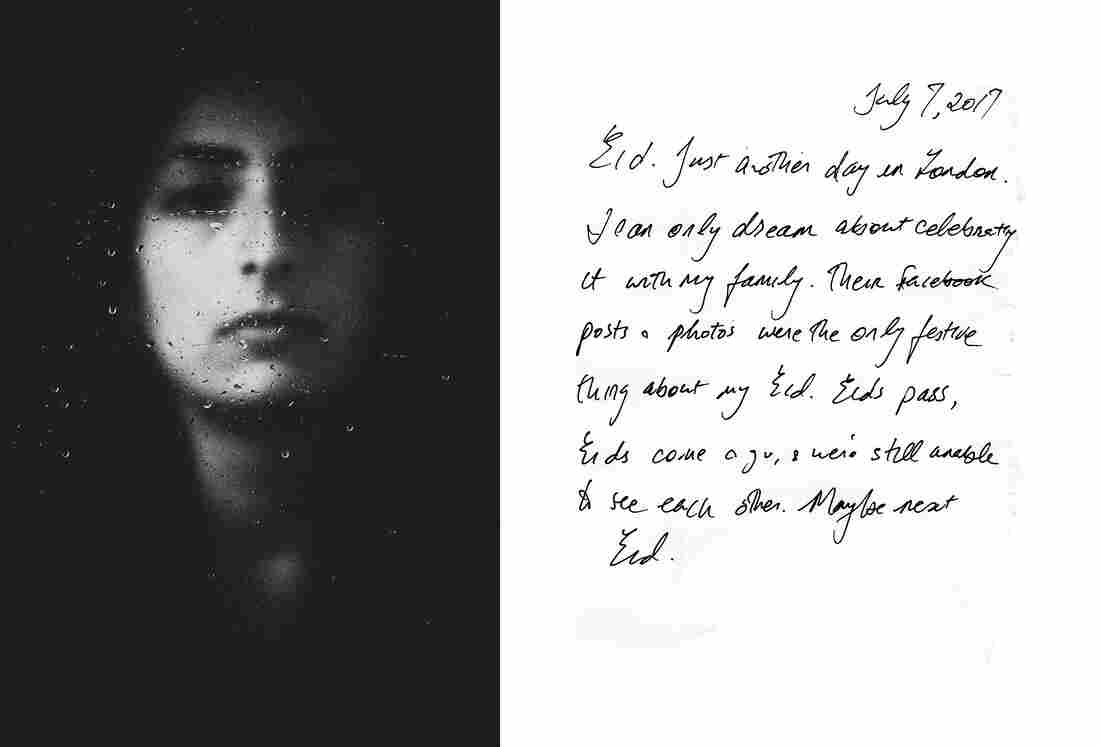 July 7, 2017
Eid. Just another day in London.
I can only dream about celebrating
it with my family. Their Facebook
posts & photos were the only festive
thing about my Eid. Eids pass,
Eids come & go, & we're still unable
to see each other. Maybe next
Eid.